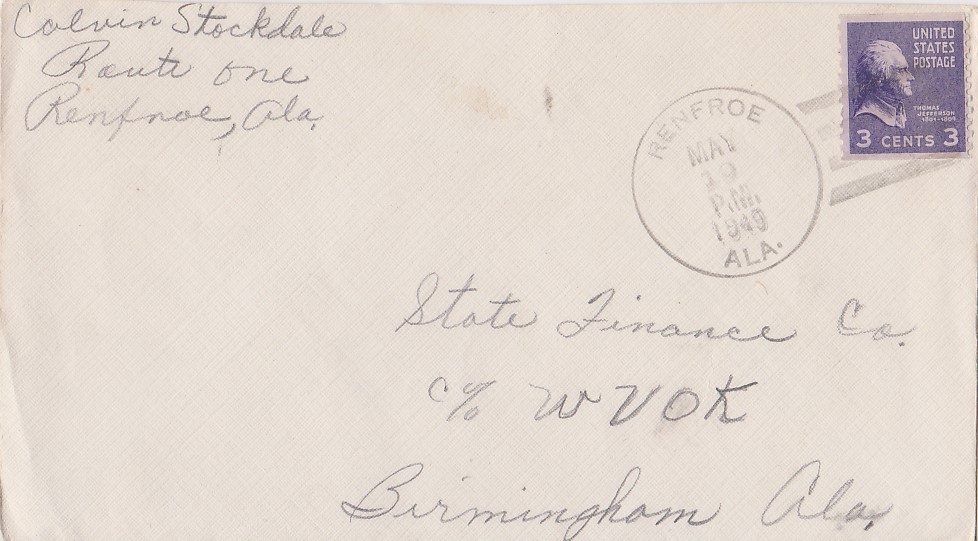 Colvin Stockdale
Route one
Renfroe, Ala.
UNITED
STATES
POSTAGE
THOMAS
JEFFERSON
1801-1809
3 CENTS 3
RENFROE
MAY
19
P.M.
1949
ALA.
State Finance Co.
c/o WVOK
Birmingham Ala.